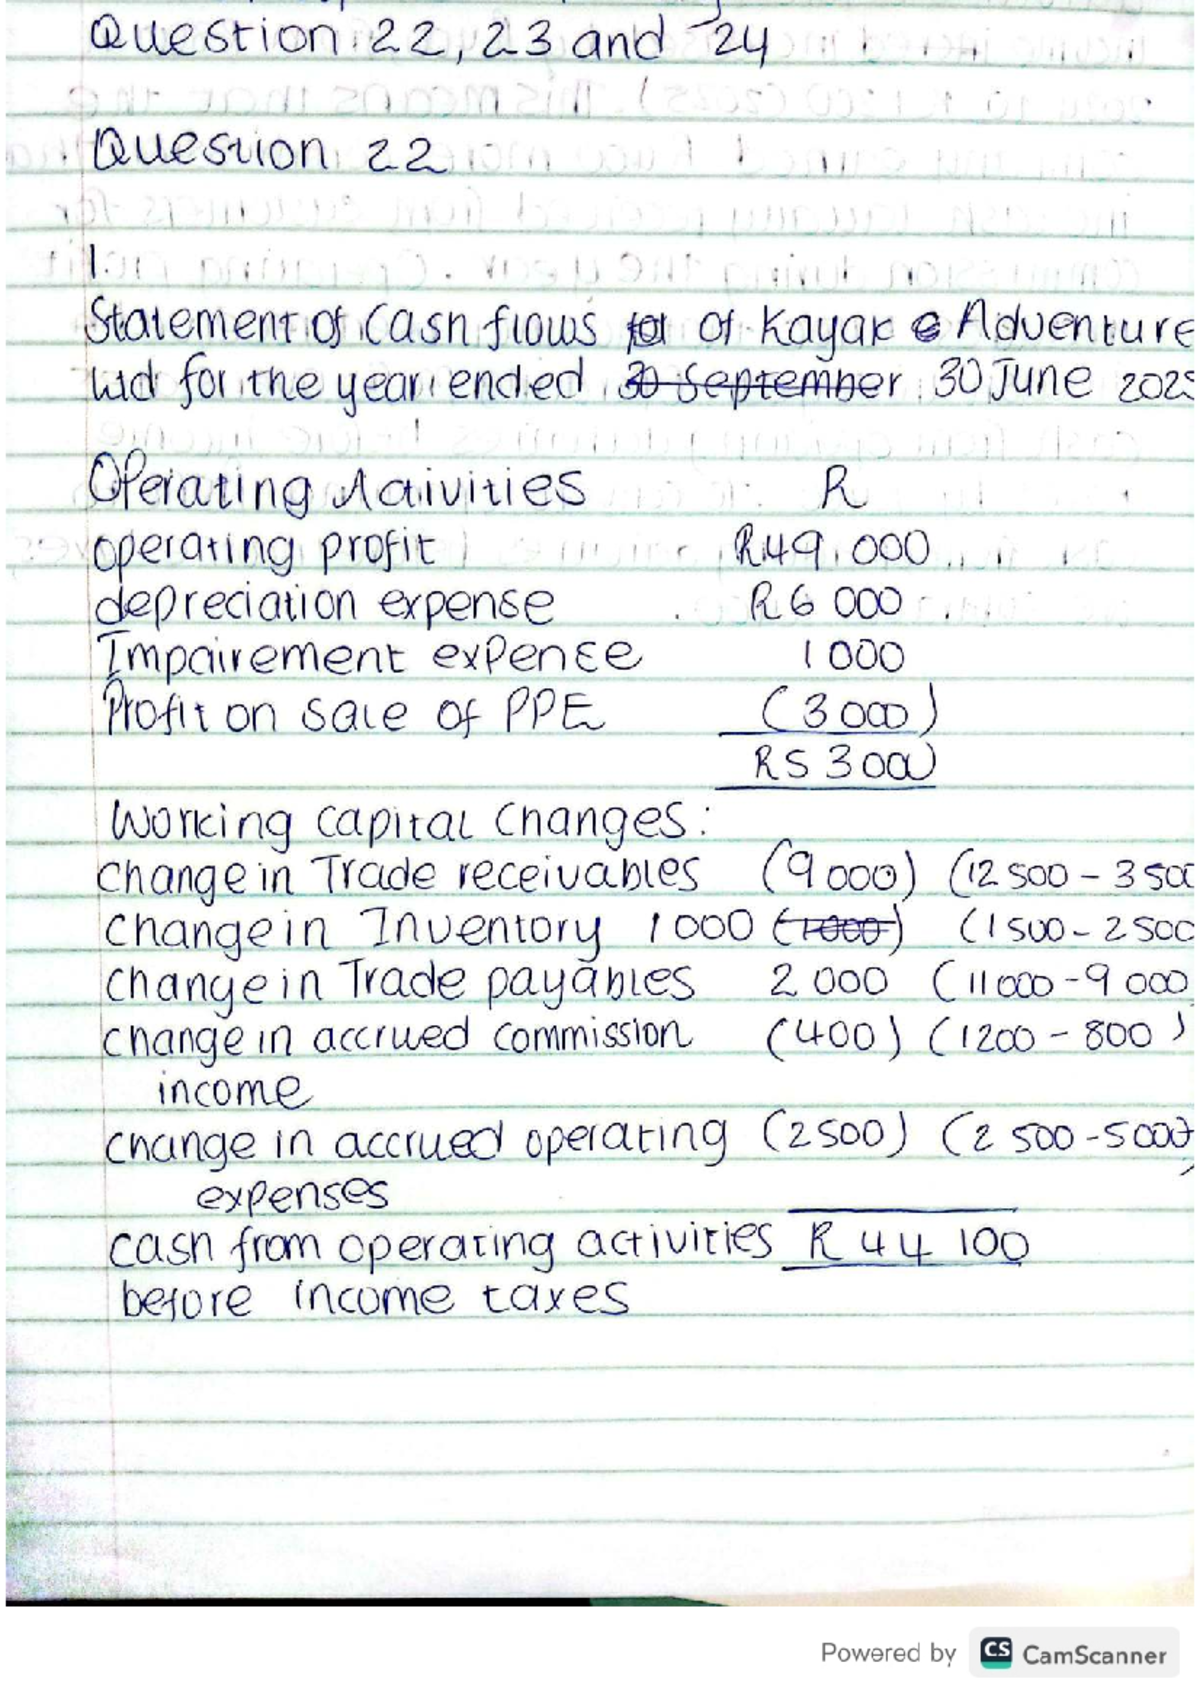 Question 22, 23 and 24
Question 22
1.
Statement of Cash flows of Kayak Adventure
Ltd for the year ended 30 September 30 June 2025
Operating Activities R
operating profit R49 000
depreciation expense R6 000
Impairement expense 1 000
Profit on sale of PPE (3 000)
R53 000
Working capital changes:
change in Trade receivables (9 000) (12 500 - 3 500
change in Inventory 1 000 (1 000) (1 500 - 2 500
change in Trade payables 2 000 (11 000 - 9 000
change in accrued commission (400) (1200 - 800)
income
change in accrued operating (2500) (2 500 - 5000)
expenses
cash from operating activities R 44 100
before income taxes
Powered by CS CamScanner